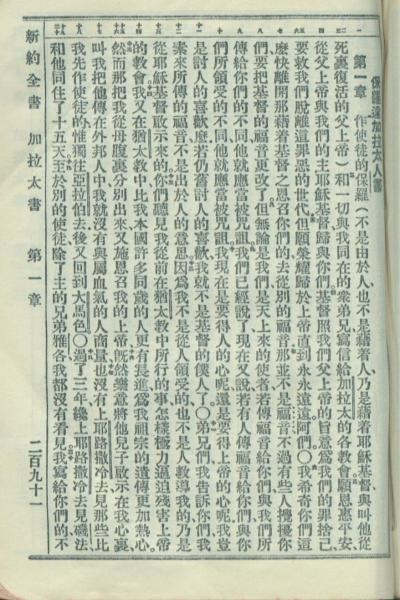 保羅達加拉太人書
第一章 作使徒的保羅(不是由於人、也不是藉着人、乃是藉着耶穌基督、與叫他從
死裏復活的父上帝)和一切與我同在的衆弟兄、寫信給加拉太的各教會願恩惠平安、
從父上帝與我們的主耶穌基督、歸與你們基督照我們父上帝的旨意、爲我們的罪捨己、
要救我們脫離這罪惡的世代但願榮耀歸於上帝、直到永永遠遠阿們〇我希奇你們這
麽快離開那藉着基督之恩召你們的、去從別的福音那並不是福音、不過有些人攪擾你
們、要把基督的福音更改了但無論是我們、是天上來的使者、若傳福音給你們、與我們所
傳給你們的不同、他就應當被咒詛我們已經說了、現在又說、若有人傳福音給你們、與你
們所領受的不同、他就應當被咒詛我現在是要得人的心呢、還是要得上帝的心呢我豈
是討人的喜歡麽若仍舊討人的喜歡、我就不是基督的僕人了〇弟兄們、我告訴你們、我
素來所傳的福音、不是出於人的意思因爲我不是從人領受的、也不是人教導我的、乃是
從耶穌基督啟示來的你們聽見我從前在猶太教中所行的事、怎樣極力逼迫殘害上帝
的教會我又在猶太教中、比我本國許多同歲的人、更有長進、爲我祖宗的遺傳更加熱心、
然而那把我從母腹裏分別出來、又施恩召我的上帝、旣然樂意將他兒子啟示在我心裏、
叫我把他傳在外邦人中、我就沒有與屬血氣的人商量、也沒有上耶路撒冷去、見那些比
我先作使徒的惟獨往亞拉伯去後又回到大馬色〇過了三年、纔上耶路撒冷去見磯法、
和他同住了十五天至於別的使徒、除了主的兄弟雅各、我都沒有看見我寫給你們的不
新約全書 加拉太書 第一章 二百九十一